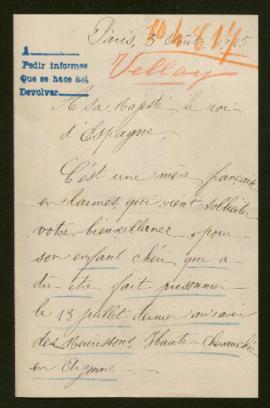 Paris, 5 Août 1915
Vellay
1
Pedir informes
Que se hace así
Devolver
A Sa Majesté le roi
d'Espagne,
C'est une mère française
en larmes, qui vient solliciter
votre bienveillance pour
son enfant chéri, qui a
dû être fait prisonnier
le 13 juillet dernier au ravin
des Meurissons, Haute Chevauchée
en Argonne